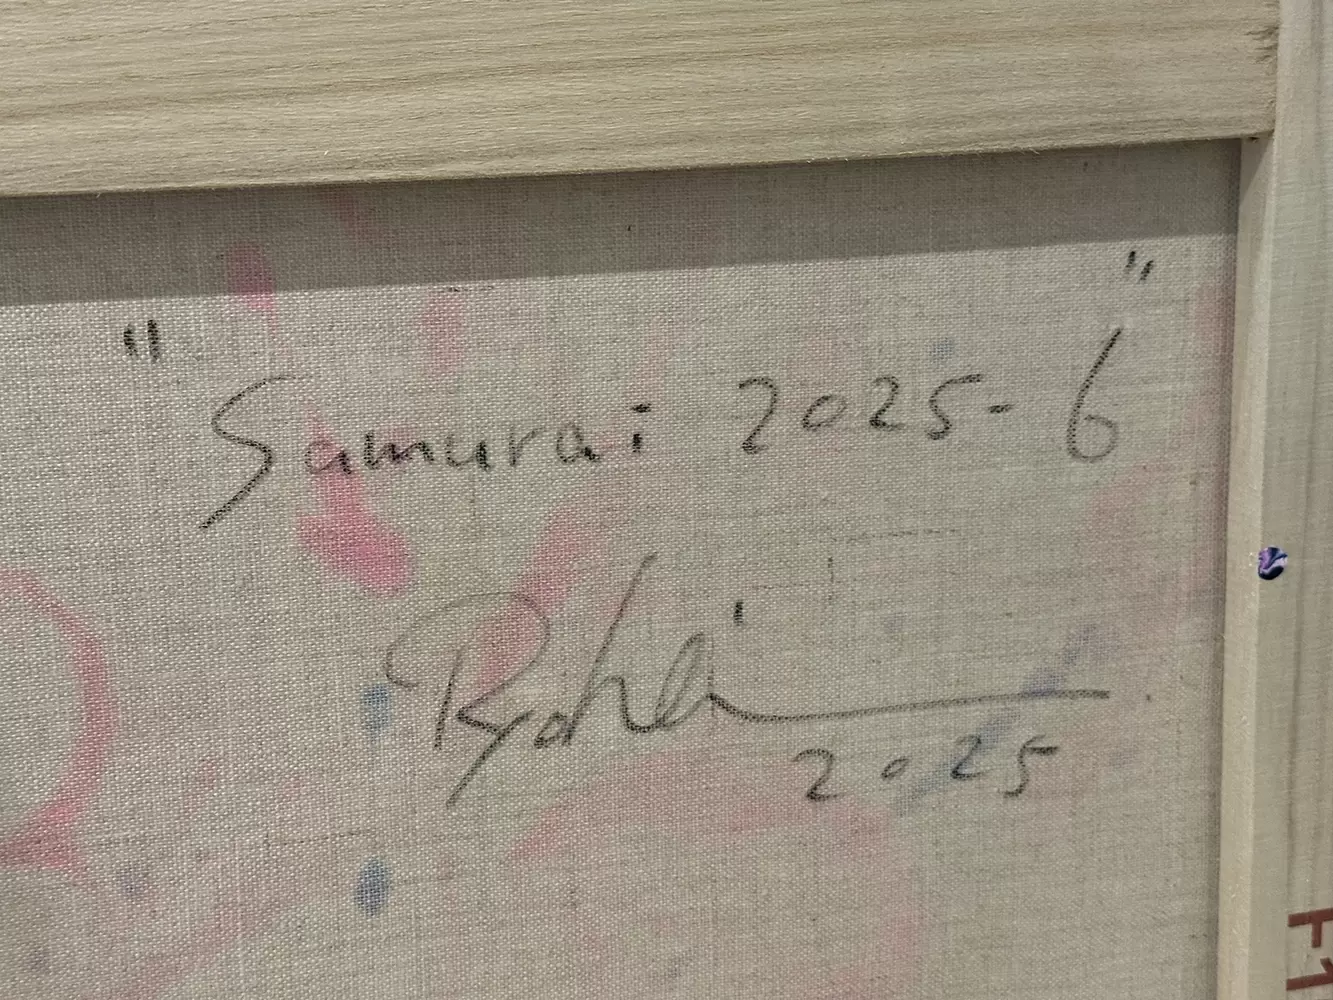 "Samurai 2025-6"
Ryohei
2025
F1